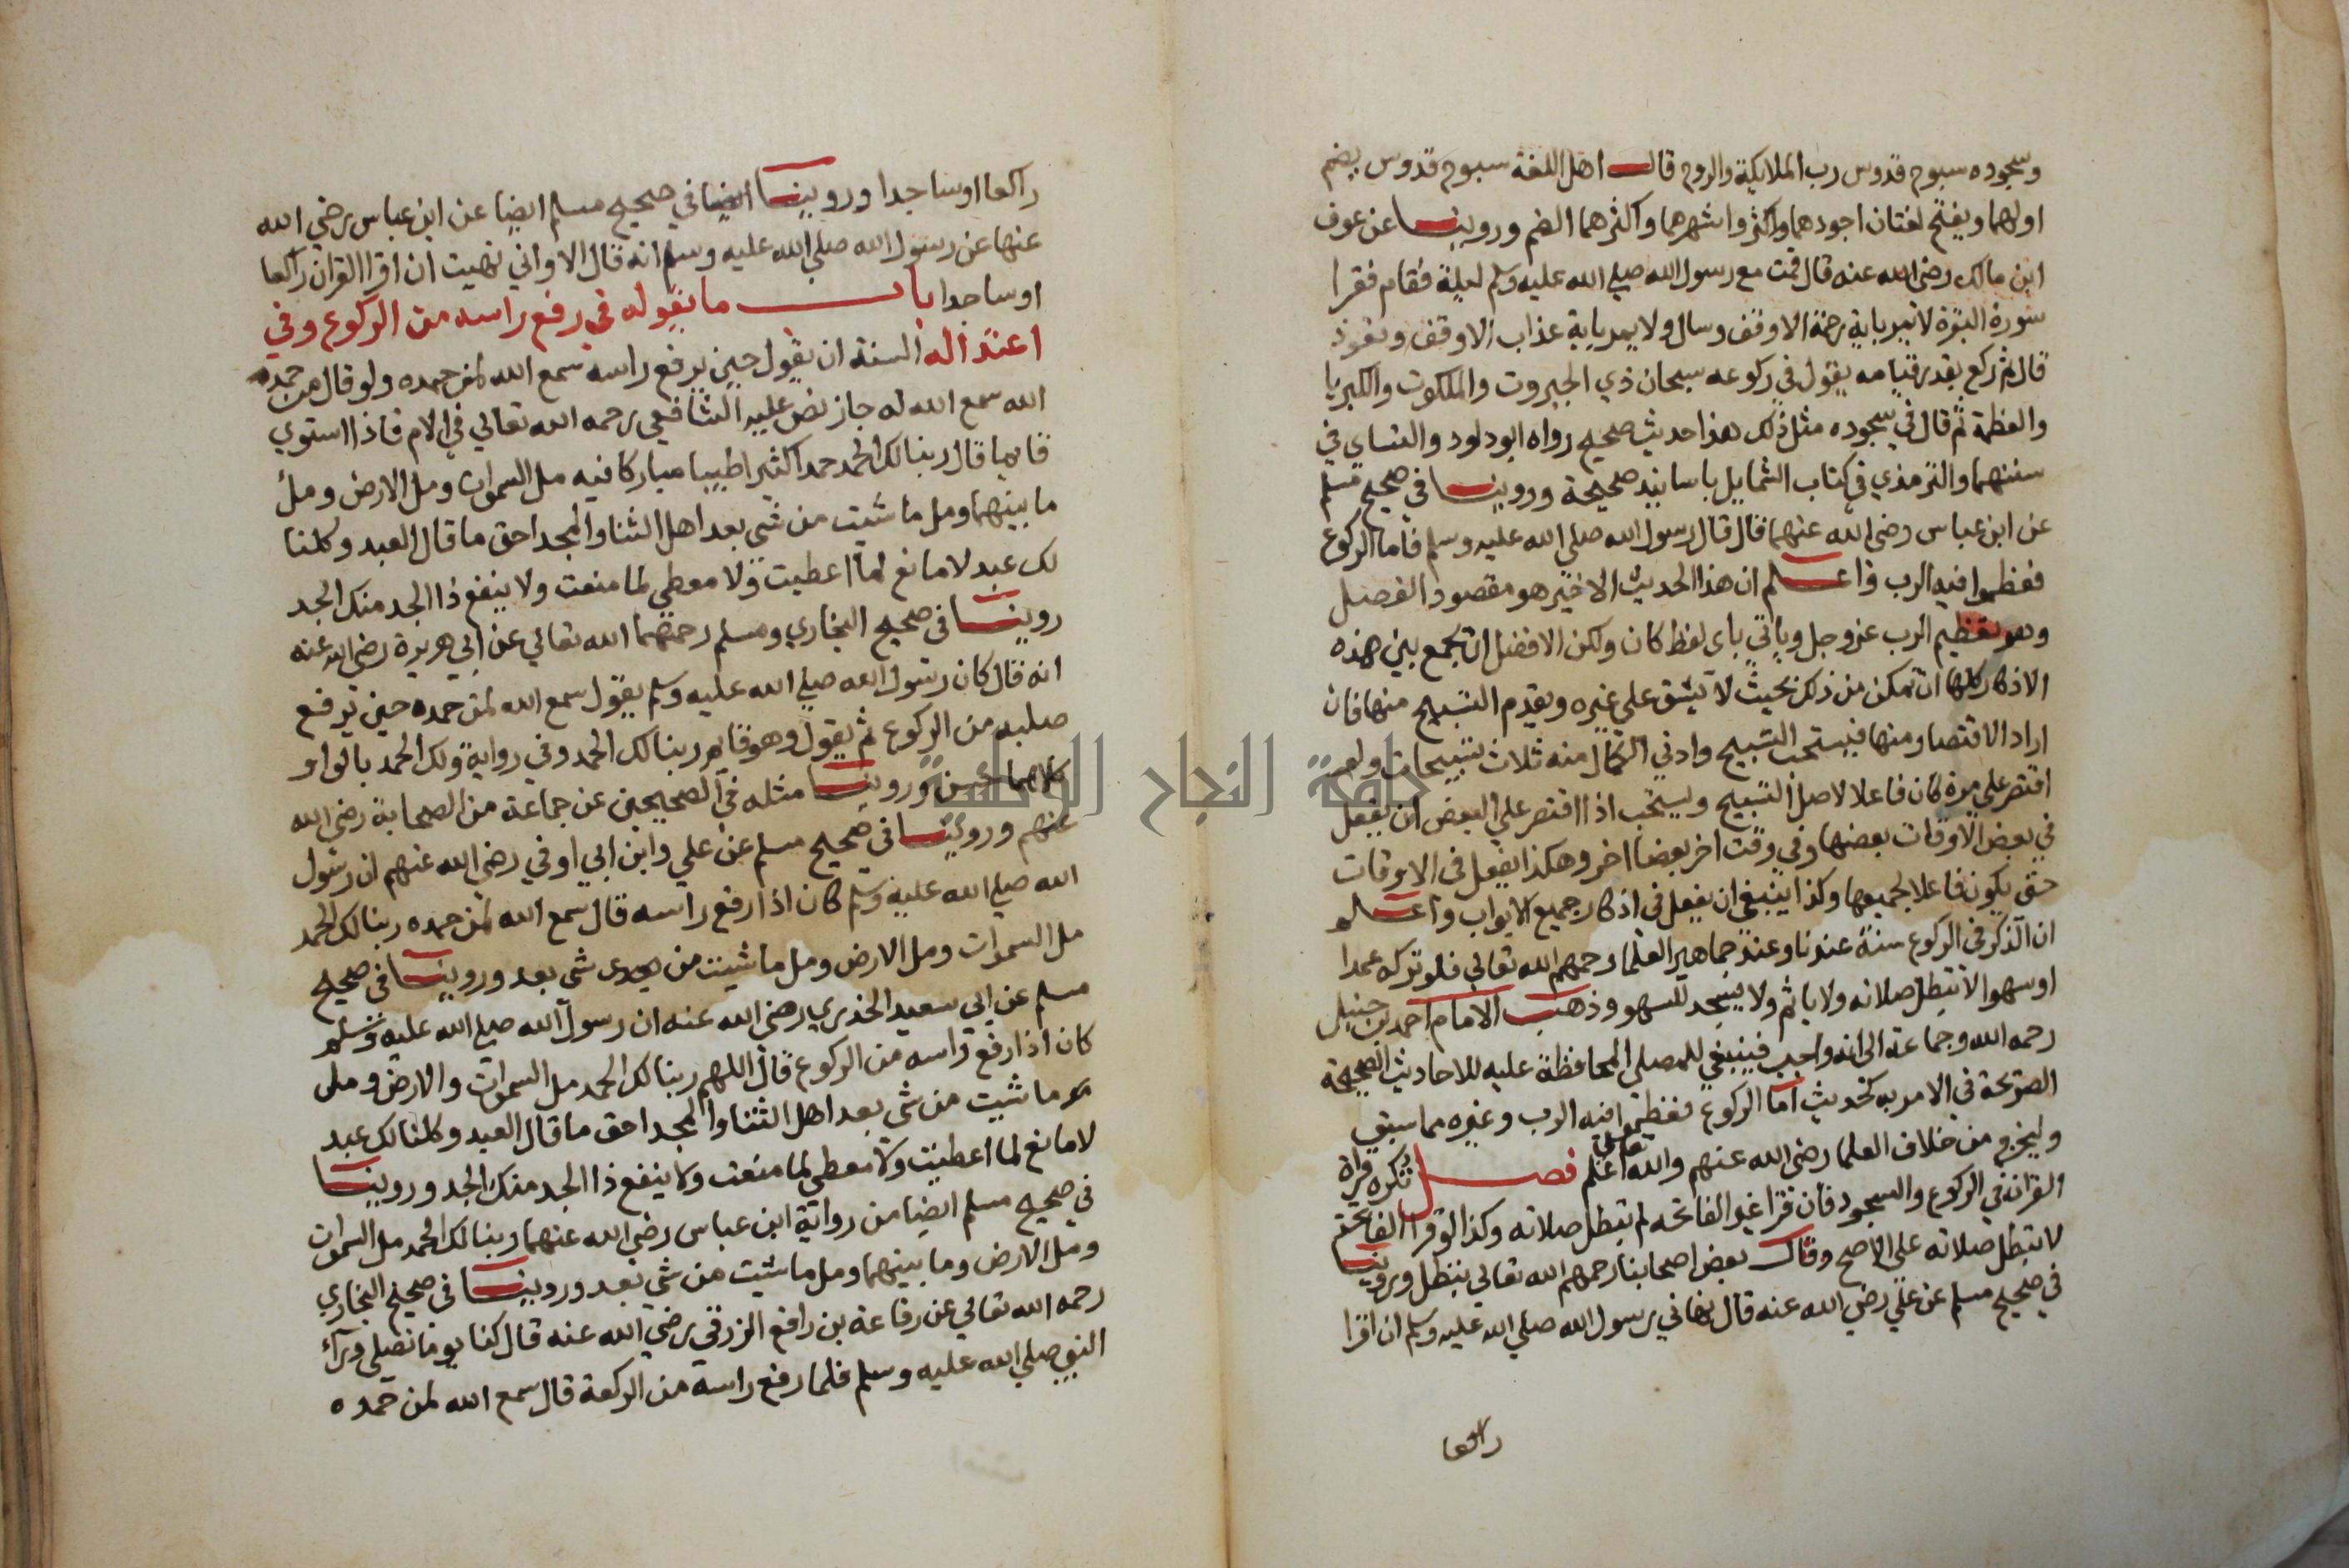 وسجوده سبوح قدوس رب الملايكة والروح قال اهل اللغة سبوح قدوس بضم
اولهما وبفتح لغتان اجودهما واكثر واشهرهما واكثرهما الضم وروينا عن عوف
ابن مالك رضي الله عنه قال قمت مع رسول الله صلي الله عليه وسلم ليلة فقام فقرا
سورة البقرة لا تمر باية رحمة الا وقف وسال ولا يمر باية عذاب الا وقف وتعوذ
قال ثم ركع بقدر قيامه يقول في ركوعه سبحان ذي الجبروت والملكوت والكبريا
والعظمة ثم قال في سجوده مثل ذلك هذا حديث صحيح رواه ابو داود والنساي في
سننهما والترمذي في كتاب الشمايل باسانيد صحيحة وروينا في صحيح مسلم
عن ابن عباس رضي الله عنهما قال قال رسول الله صلي الله عليه وسلم فاما الركوع
فعظموا فيه الرب واعلم ان هذا الحديث الاخير هو مقصود الفصل
وهو تعظيم الرب عز وجل وياتي باى لفظ كان ولكن الافضل ان يجمع بين هذه
الاذكار كلها ان تمكن من ذلك بحيث لا يشق علي غيره ويقدم التسبيح منها فان
اراد الاقتصار منها فيستحب التسبيح وادني الكمال منه ثلاث تسبيحات ولو
اقتصر علي مرة كان فاعلا لاصل التسبيح ويستحب اذا اقتصر علي البعض ان يفعل
في بعض الاوقات بعضها وفي وقت اخر بعضا اخر وهكذا يفعل في الاوقات
حتى يكون فاعلا لجميعها وكذا ينبغي ان يفعل في اذكار جميع الابواب واعلم
ان الذكر في الركوع سنة عندنا وعند جماهير العلما رحمهم الله تعالي فلو تركه عمدا
او سهوا لا تبطل صلاته ولا ياثم ولا يسجد للسهو وذهب الامام احمد بن حنبل
رحمه الله وجماعة الى انه واجب فينبغي للمصلي المحافظة عليه للاحاديث الصحيحة
الصريحة في الامر به كحديث اما الركوع فعظموا فيه الرب وغيره مما سبق
وليخرج من خلاف العلما رضي الله عنهم والله اعلم فصل تكره قراة
القران في الركوع والسجود فان قرا غير الفاتحه لم تبطل صلاته وكذا لو قرا الفاتحة
لا تبطل صلاته علي الاصح وقال بعض اصحابنا رحمهم الله تعالي تبطل وروينا
في صحيح مسلم عن علي رضي الله عنه قال نهاني رسول الله صلي الله عليه وسلم ان اقرا
راكعا
راكعا او ساجدا وروينا ايضا في صحيح مسلم ايضا عن ابن عباس رضي الله
عنها عن رسول الله صلي الله عليه وسلم انه قال الا واني نهيت ان اقرا القران راكعا
او ساجدا باب ما يقوله في رفع راسه من الركوع وفي
اعتداله السنة ان يقول حين يرفع راسه سمع الله لمن حمده ولو قال من حمد
الله سمع الله له جاز نص عليه الشافعي رحمه الله تعالي في الام فاذا استوي
قايما قال ربنا لك الحمد حمدا كثيرا طيبا مباركا فيه مل السموات ومل الارض وملأ
ما بينهما ومل ما شيت من شي بعد اهل الثنا والمجد احق ما قال العبد وكلنا
لك عبد لا مانع لما اعطيت ولا معطي لما منعت ولا ينفع ذا الجد منك الجد
روينا في صحيح البخاري ومسلم رحمهما الله تعالي عن ابي هريرة رضي الله عنه
انه قال كان رسول الله صلي الله عليه وسلم يقول سمع الله لمن حمده حين يرفع
صلبه من الركوع ثم يقول وهو قايم ربنا لك الحمد وفي رواية ولك الحمد بالواو
كلاهما حسن وروينا مثله في الصحيحين عن جماعة من الصحابة رضي الله
عنهم وروينا في صحيح مسلم عن علي وابن ابي اوفي رضي الله عنهم ان رسول
الله صلي الله عليه وسلم كان اذا رفع راسه قال سمع الله لمن حمده ربنا لك الحمد
مل السموات ومل الارض ومل ما شيت من شي بعد وروينا في صحيح
مسلم عن ابي سعيد الخذري رضي الله عنه ان رسول الله صلي الله عليه وسلم
كان اذا رفع راسه من الركوع قال اللهم ربنا لك الحمد مل السموات والارض وملى
ما شيت من شي بعد اهل الثنا والمجد احق ما قال العبد وكلنا لك عبد
لا مانع لما اعطيت ولا معطي لما منعت ولا ينفع ذا الجد منك الجد وروينا
في صحيح مسلم ايضا من رواية ابن عباس رضي الله عنهما ربنا لك الحمد مل السموات
ومل الارض وما بينهما ومل ما شيت من شي بعد وروينا في صحيح البخاري
رحمه الله تعالي عن رفاعة بن رافع الزرقي رضي الله عنه قال كنا يوما نصلي ورآء
النبي صلي الله عليه وسلم فلما رفع راسه من الركعة قال سمع الله لمن حمده
جامعة النجاح الوطنية